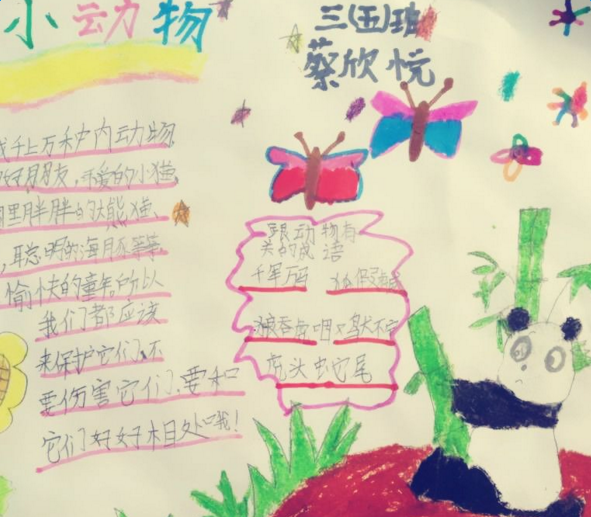 小动物
三(五)班
蔡欣悦
成千上万种内动物
好朋友,可爱的小猫
里胖胖的大熊猫
,聪明的海豚等等
愉快的童年所以
我们都应该
来保护它们,不
要伤害它们,要和
它们好好相处哦!
跟动物有
关的成语
千军万 狐假虎
狼吞虎咽 鸡犬不宁
虎头蛇尾